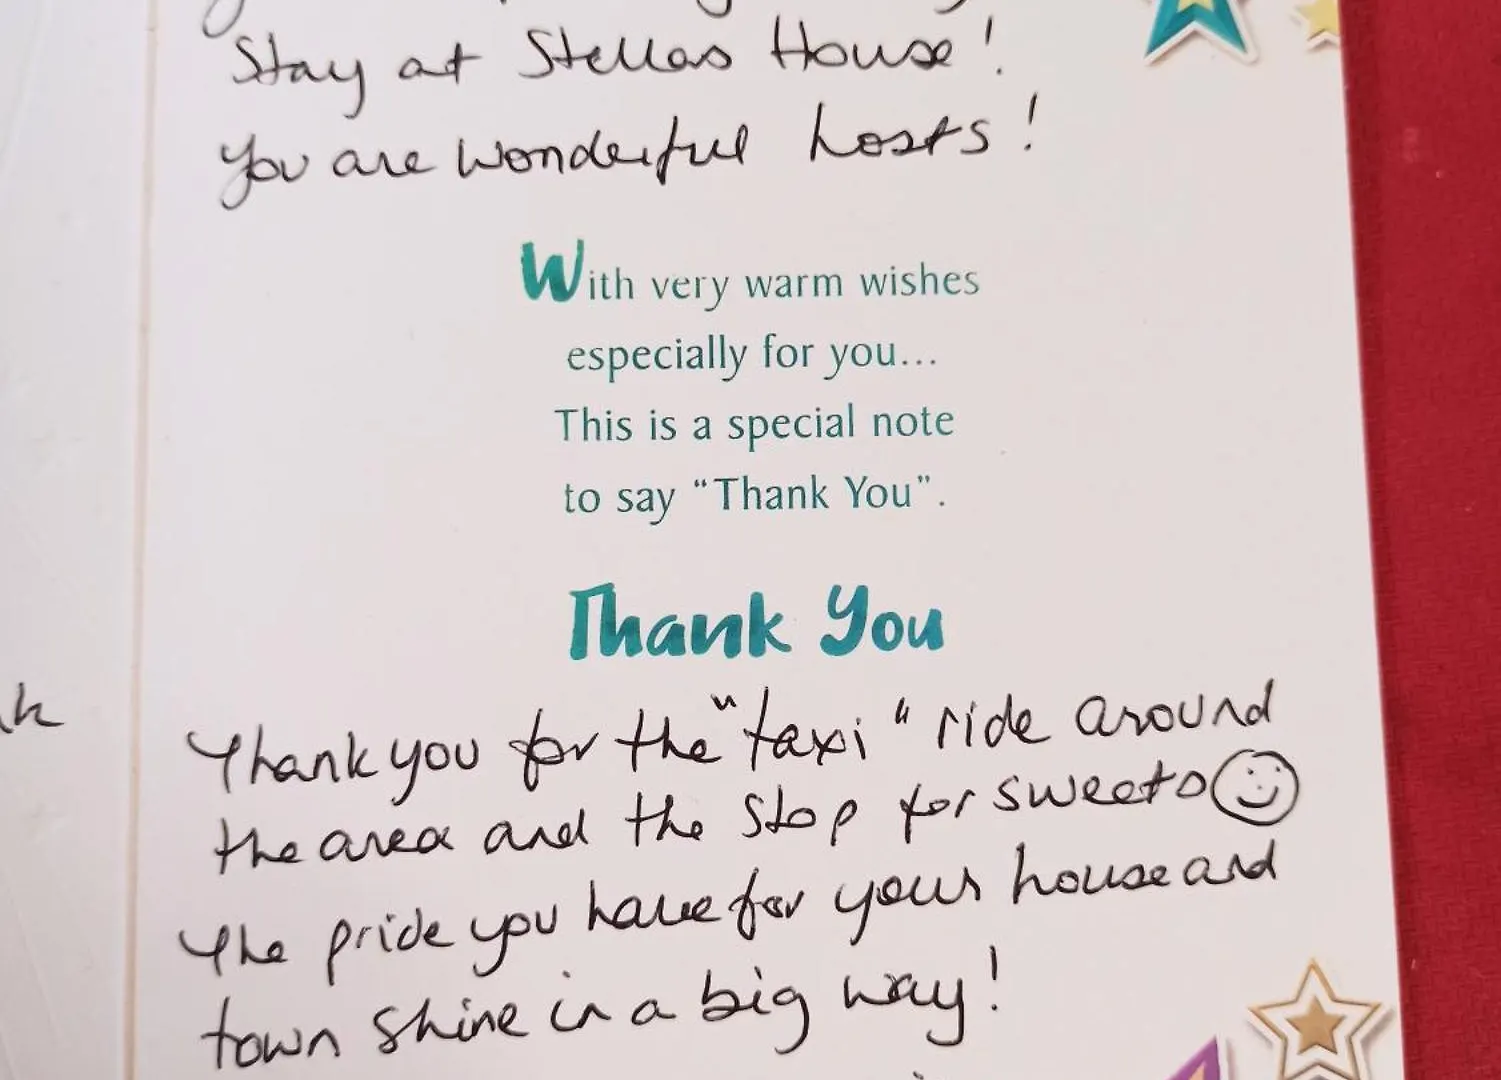 Stay at Stellas House!
You are wonderful hosts!
With very warm wishes
especially for you...
This is a special note
to say “Thank You”.
Thank You
Thank you for the "taxi" ride around
the area and the stop for sweets
The pride you have for your house and
town shine in a big way!